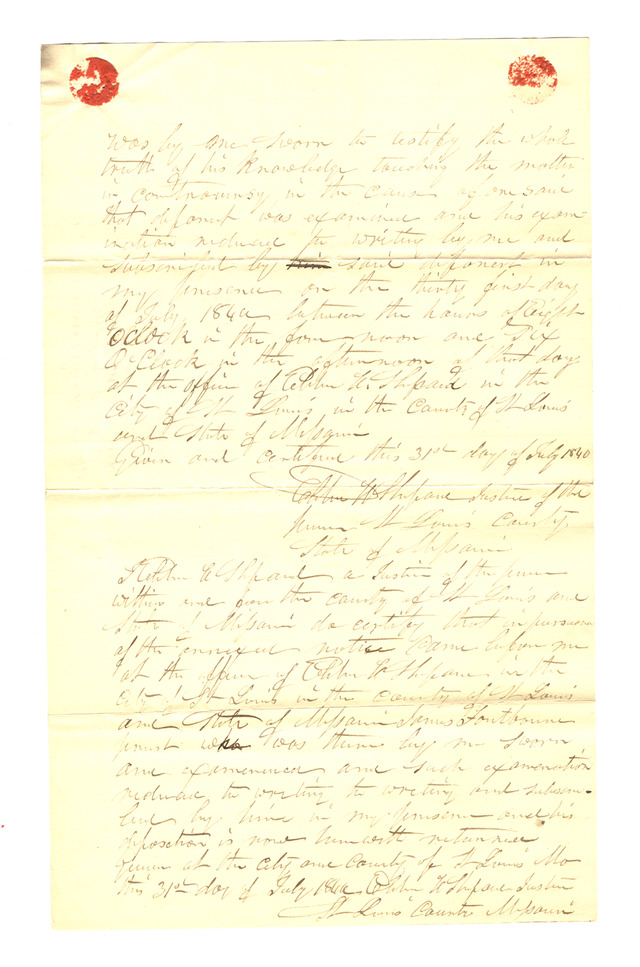 was by me sworn to testify the whole
truth of his knowledge touching the matter
in controversy in the cause aforesaid
that deponent was examined and his exam-
ination reduced to writing by me and
subscribed by him said deponent in
my presence on the thirty first day
of July 1840 between the hours of Eight
OClock in the fore noon and Six
O Clock in the afternoon of that day
at the office of W Shepard in the
City of St Louis in the County of St Louis
and State of Missouri
Given and certified this 31st day of July 1840
W Shepard Justice of the
peace St Louis County
State of Missouri
I W Shepard a Justice of the peace
within and for the county of St Louis and
State of Missouri do certify that in pursuance
of the annexed notice came before me
at the office of W Shepard in the
City of St Louis in the county of St Louis
and State of Missouri James Fontbonne
who was then by me sworn
and examined and such examination
reduced to writing to writing and subscri-
bed by him in my presence and his
deposition is now herewith returned
Given at the city and county of St Louis Mo
this 31st day of July 1840 W Shepard Justice
St Louis County Missouri